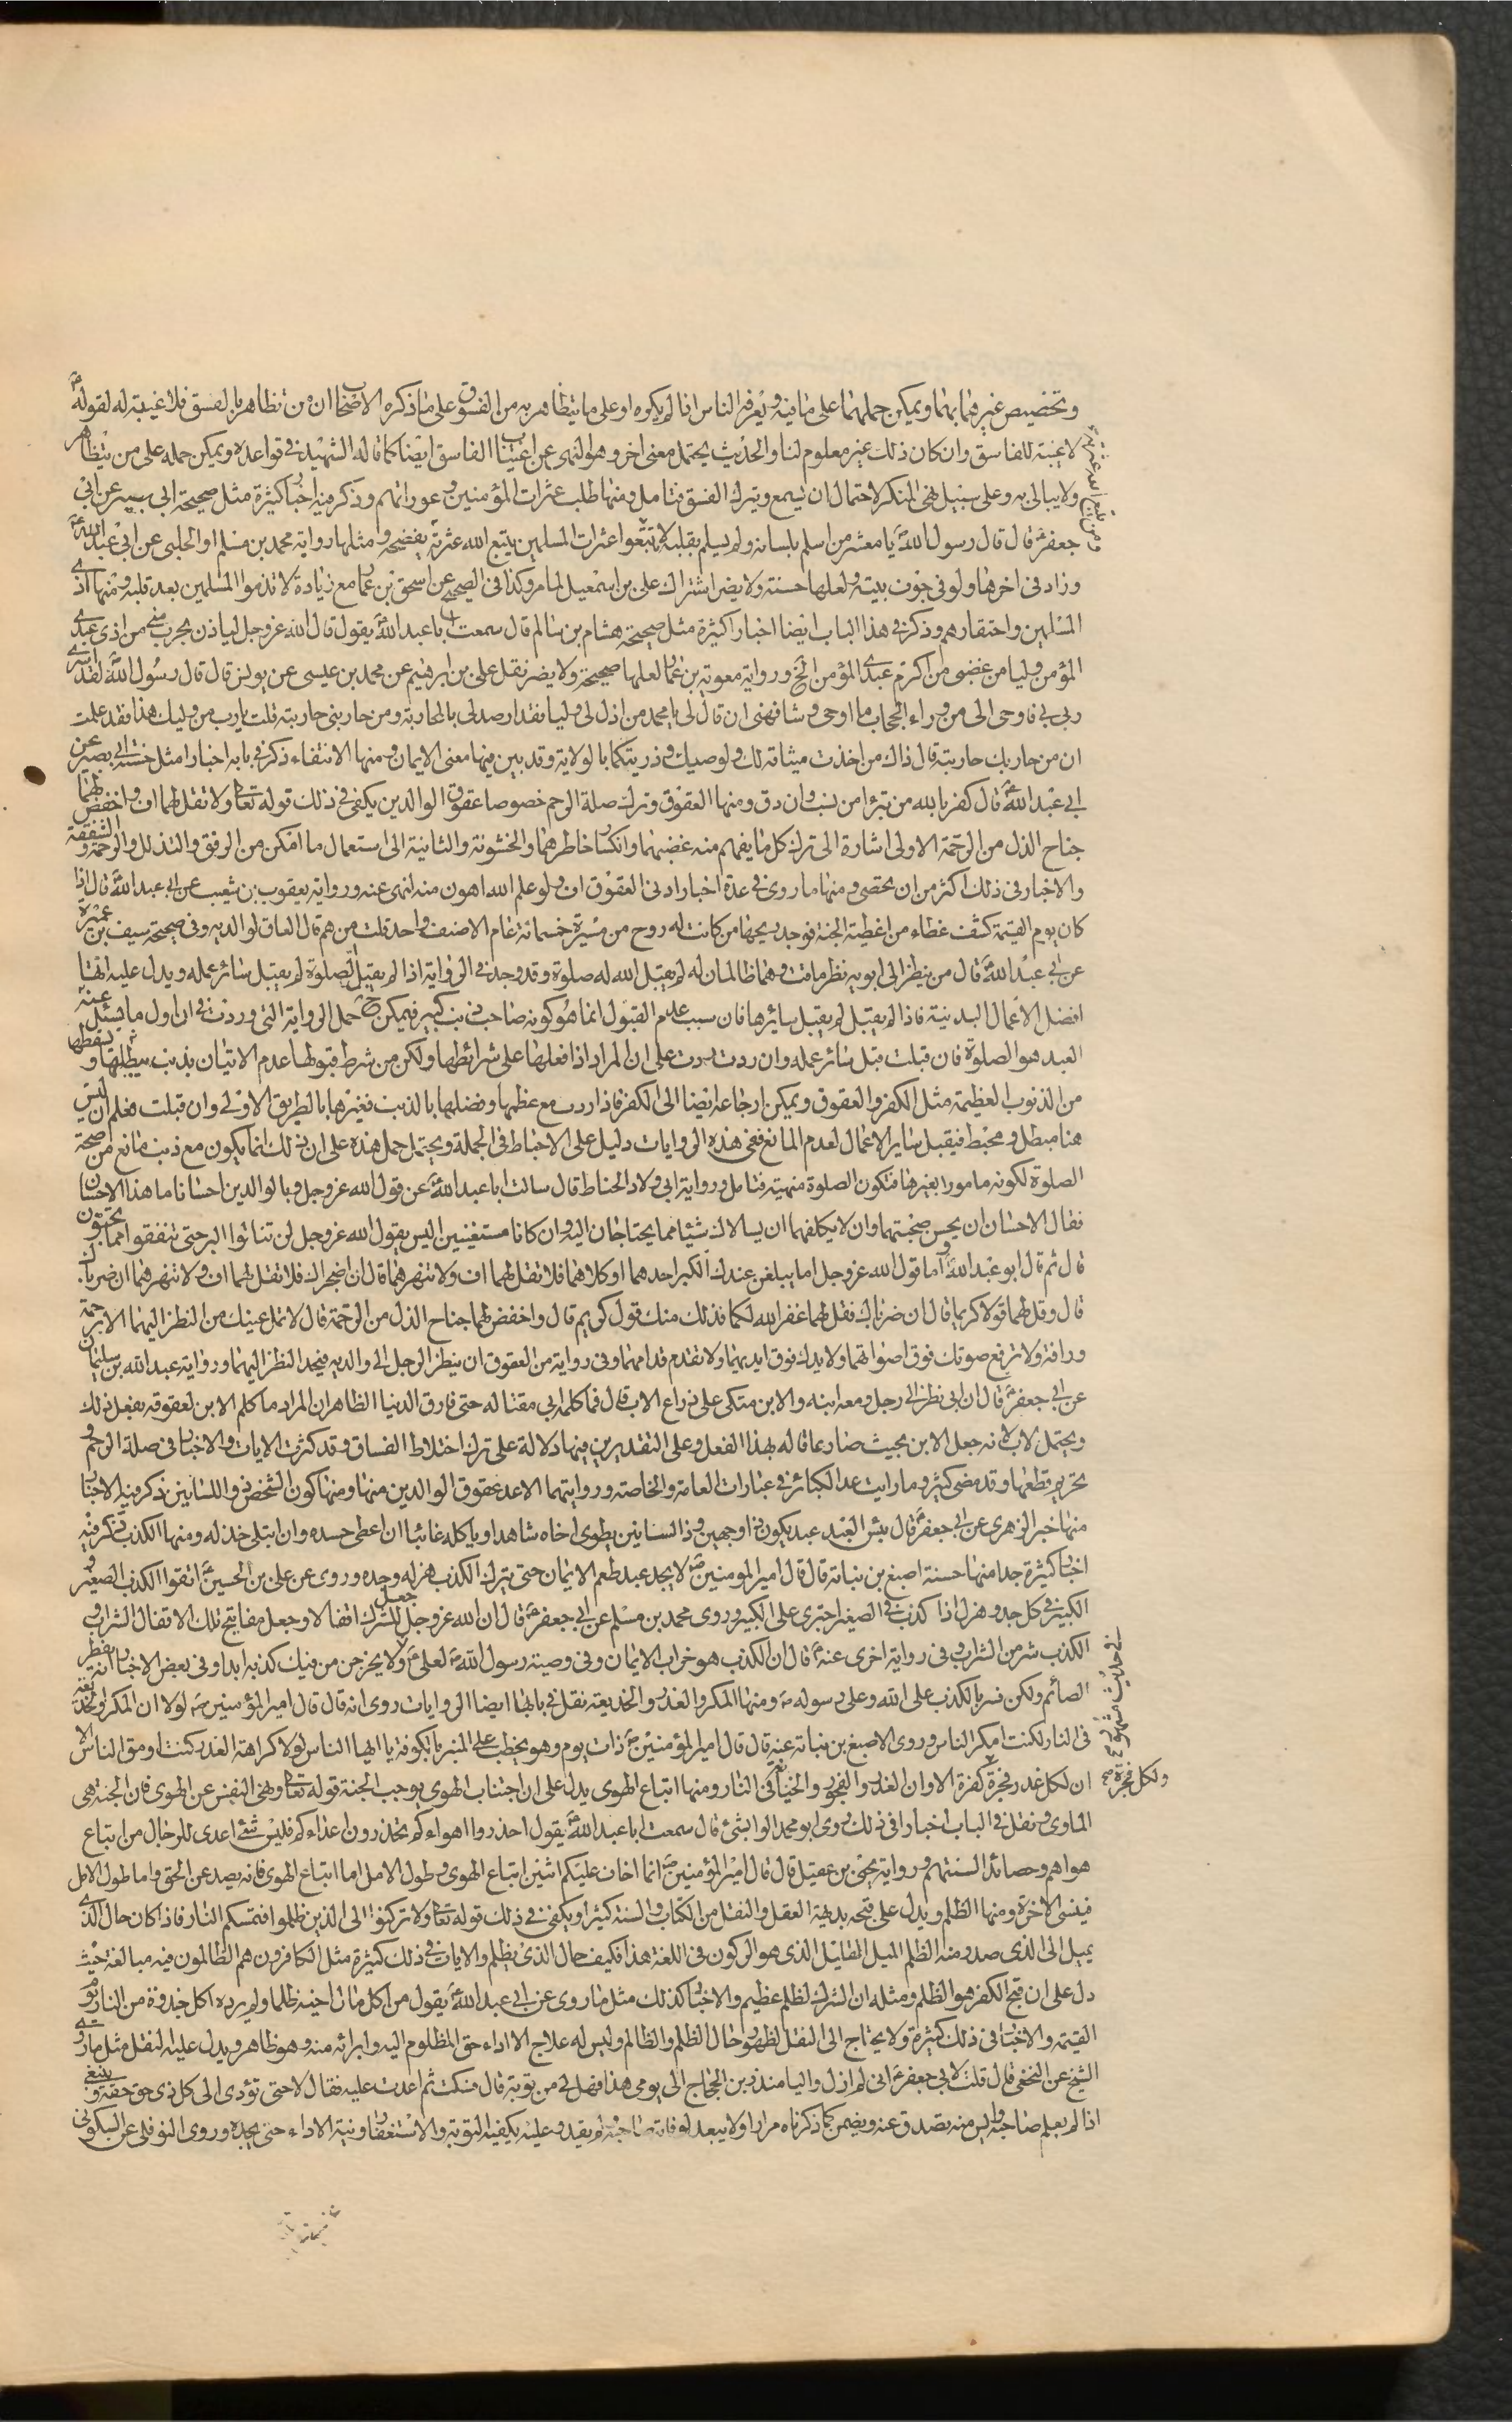 وتخصيص غيرهما بهما ويمكن حملهما على ما فيه ويعرفه الناس اذا لم يكره او على ما يتظاهر به من الفسوق على ما ذكره الاصحاب ان من تظاهر بالفسق فلا غيبة له لقوله ص
لا غيبة للفاسق وان كان ذلك غير معلوم لنا والحديث يحتمل معنى اخر وهو النهى عن اغتياب الفاسق ايضا كما قاله الشهيد فى قواعده ويمكن حمله على من يتظاهر
ولا يبالى به وعلى سبيل نهى المنكر لاحتمال ان يسمع ويترك الفسق فتامل ومنها طلب عثرات المؤمنين وعوراتهم وذكر فيه اخبارا كثيرة مثل صحيحة ابى بصير عن ابى
جعفر ع قال قال رسول الله ص يا معشر من اسلم بلسانه ولم يسلم بقلبه لا تتبعوا عثرات المسلمين يتبع الله عثرته يفضحه ومثلها رواية محمد بن مسلم او الحلبى عن ابى عبد الله ع
وزاد فى اخرها ولو فى جوف بيته ولعلها حسنة ولا يضر اشتراك على بن اسمعيل لما مر وكذا فى الصحيح عن اسحق بن عمار مع زيادة لا تذموا المسلمين بعد قلبه ومنها اذى
المسلمين واحتقارهم وذكر فى هذا الباب ايضا اخبارا كثيرة مثل صحيحة هشام بن سالم قال سمعت ابا عبد الله ع يقول قال الله عز وجل لياذن بحرب منى من اذى عبدى
المؤمن وليامن غضبى من اكرم عبدى المؤمن الخ ورواية معوية بن عمار لعلها صحيحة ولا يضر نقل على بن ابرهيم عن محمد بن عيسى عن يونس قال قال رسول الله ص لقد اسرى
ربى بى فاوحى الى من وراء الحجاب ما اوحى وشافهنى ان قال لى يا محمد من اذل لى وليا فقد ارصد لى بالمحاربة ومن حاربنى حاربته قلت يا رب من وليك هذا فقد علمت
ان من حاربك حاربته قال ذاك من اخذت ميثاقه لك ولوصيك وذريتكما بالولاية وقد بين فيها معنى الايمان ومنها الانتفاء ذكر فى بابه اخبارا مثل حسنة ابى بصير عن
ابى عبد الله ع قال كفر بالله من تبرا من نسب وان دق ومنها العقوق وترك صلة الرحم خصوصا عقوق الوالدين يكفى فى ذلك قوله تعالى ولا تقل لهما اف واخفض لهما
جناح الذل من الرحمة الاولى اشارة الى ترك كل ما يفهم منه غضبهما وانكسار خاطرهما والخشونة والثانية الى استعمال ما امكن من الرفق والتذلل والرحمة والشفقة
والاخبار فى ذلك اكثر من ان يحصى ومنها ما روى فى عدة اخبار ادنى العقوق اف ولو علم الله اهون منه لنهى عنه ورواية يعقوب بن شعيب عن ابى عبد الله ع قال اذا
كان يوم القيمة كشف غطاء من اغطية الجنة فوجد ريحها من كانت له روح من مسيرة خمسمائة عام الا صنف واحد قلت من هم قال العاق لوالديه وفى صحيحة سيف بن عميرة
عن ابى عبد الله ع قال من ينظر الى ابويه نظر ماقت وهما ظالمان له لم يقبل الله له صلوة وقد وجد فى الرواية اذا لم يقبل الصلوة لم يقبل سائر عمله ويدل عليه انها
افضل الاعمال البدنية فاذا لم يقبل لم يقبل سايرها فان سبب عدم القبول انما هو كونه صاحب ذنب كبير فيمكن ح حمل الرواية التى وردت فى ان اول ما يسئل عنه
العبد هو الصلوة فان قبلت قبل سائر عمله وان ردت ردت على ان المراد اذا فعلها على شرائطها ولكن من شرط قبولها عدم الاتيان بذنب يبطلها ويسقطها
من الذنوب العظيمة مثل الكفر والعقوق ويمكن ارجاعه ايضا الى الكفر فاذا ردت مع عظمها وفضلها بالذنب فغيرها بالطريق الاولى وان قبلت فعلم ان ليس
هنا مبطل ومحبط فيقبل ساير الاعمال لعدم المانع ففى هذه الروايات دليل على الاحباط فى الجملة ويحتمل حمل هذه على ان ذلك انما يكون مع ذنب مانع من صحة
الصلوة لكونه مامورا بغيرها فتكون الصلوة منهية فتامل ورواية ابى ولاد الحناط قال سالت ابا عبد الله ع عن قول الله عز وجل وبالوالدين احسانا ما هذا الاحسان
فقال الاحسان ان يحسن صحبتهما وان لا يكلفهما ان يسالاك شيئا مما يحتاجان اليه وان كانا مستغنيين اليس يقول الله عز وجل لن تنالوا البر حتى تنفقوا مما تحبون
قال ثم قال ابو عبد الله ع واما قول الله عز وجل اما يبلغن عندك الكبر احدهما او كلاهما فلا تقل لهما اف ولا تنهرهما قال ان اضجراك فلا تقل لهما اف ولا تنهرهما ان ضرباك
قال وقل لهما قولا كريما قال ان ضرباك فقل لهما غفر الله لكما فذلك منك قول كريم قال واخفض لهما جناح الذل من الرحمة قال لا تمل عينيك من النظر اليهما الا برحمة
ورافة ولا ترفع صوتك فوق اصواتهما ولا يدك فوق ايديهما ولا تقدم قدامهما وفى رواية من العقوق ان ينظر الرجل الى والديه فيحد النظر اليهما ورواية عبد الله بن سليمان
عن ابى جعفر ع قال ان ابى نظر الى رجل ومعه ابنه والابن متكى على ذراع الاب قال فما كلمه ابى مقتا له حتى فارق الدنيا الظاهر ان المراد ما كلم الابن لعقوقه بفعل ذلك
ويحتمل الاب لانه جعل الابن بحيث صار عاقا له بهذا الفعل وعلى التقديرين فيها دلالة على ترك اختلاط الفساق وقد كثرت الايات والاخبار فى صلة الرحم و
تحريم قطعها وقد مضى كثير وما رايت عد الكبائر فى عبارات العامة والخاصة وروايتهما الا عد عقوق الوالدين منها ومنها كون الشخص ذو اللسانين ذكر فيه الاخبار
منها خبر الزهرى عن ابى جعفر ع قال بئس العبد عبد يكون ذا وجهين وذا لسانين يطرى اخاه شاهدا وياكله غائبا ان اعطى حسده وان ابتلى خذله ومنها الكذب ذكر فيه
اخبارا كثيرة جدا منها حسنة اصبغ بن نباتة قال قال امير المومنين ع لا يجد عبد طعم الايمان حتى يترك الكذب هزله وجده وروى عن على بن الحسين ع اتقوا الكذب الصغير و
الكبير فى كل جد وهزل اذا كذب فى الصغير اجترى على الكبير وروى محمد بن مسلم عن ابى جعفر ع قال ان الله عز وجل جعل للشر اقفالا وجعل مفاتيح تلك الاقفال الشراب و
الكذب شر من الشراب وفى رواية اخرى عنه ع قال ان الكذب هو خراب الايمان وفى وصية رسول الله ص لعلى ع ولا يخرجن من فيك كذبة ابدا وفى بعض الاخبار انه يفطر
الصائم ولكن فسر بالكذب على الله وعلى رسوله ص ومنها المكر والغدر والخديعة نقل فى بابها ايضا الروايات روى انه قال قال امير المؤمنين ع لولا ان المكر والخديعة
فى النار لكنت امكر الناس وروى الاصبغ بن نباتة عنه قال قال امير المؤمنين ع ذات يوم وهو يخطب على المنبر بالكوفة يا ايها الناس لولا كراهة الغدر كنت ادهى الناس الا
ان لكل غدر فجرة كفرة الا وان الغدر والفجور والخيانة فى النار ومنها اتباع الهوى يدل على ان اجتناب الهوى يوجب الجنة قوله تعالى ونهى النفس عن الهوى فان الجنة هى
الماوى ونقل فى الباب اخبارا فى ذلك روى ابو محمد الوابشى قال سمعت ابا عبد الله ع يقول احذروا اهواءكم كما تحذرون اعداءكم فليس شئ اعدى للرجال من اتباع
هواهم وحصائد السنتهم ورواية يحيى بن عقيل قال قال امير المؤمنين ع انما اخاف عليكم اثنين اتباع الهوى وطول الامل اما اتباع الهوى فانه يصد عن الحق واما طول الامل
فينسى الاخرة ومنها الظلم ويدل على قبحه بديهة العقل والنقل من الكتاب والسنة كثيرا ويكفى فى ذلك قوله تعالى ولا تركنوا الى الذين ظلموا فتمسكم النار فاذا كان حال الذى
يميل الى الذى صدر منه الظلم الميل القليل الذى هو الركون فى اللغة هذا فكيف حال الذى يظلم والايات فى ذلك كثيرة مثل الكافرون هم الظالمون فيه مبالغة حيث
دل على ان قبح الكفر هو الظلم ومثله ان الشرك لظلم عظيم والاخبار كذلك مثل ما روى عن ابى عبد الله ع يقول من اكل مال اخيه ظلما ولم يرده اكل جذوة من النار يوم
القيمة والاخبار فى ذلك كثيرة ولا يحتاج الى النقل لظهور حال الظلم والظالم وليس له علاج الا اداء حق المظلوم اليه وابرائه منه وهو ظاهر ويدل عليه النقل مثل ما رواه
الشيخ عن النخعى قال قلت لابى جعفر ع انى لم ازل واليا منذ زمن الحجاج الى يومى هذا فهل لى من توبة قال فسكت ثم اعدت عليه فقال لا حتى تؤدى الى كل ذى حق حقه وينبغى
اذا لم يعلم صاحبه وايس منه يتصدق عنه ويضمن كما ذكرناه مرارا ولا يبعد لو فات صاحبه ولم يقدر عليه يكفيه التوبة والاستغفار ونية الاداء حتى يجده وروى النوفلى عن السكونى
فى حديث مشهور
ولكل فجرة صح